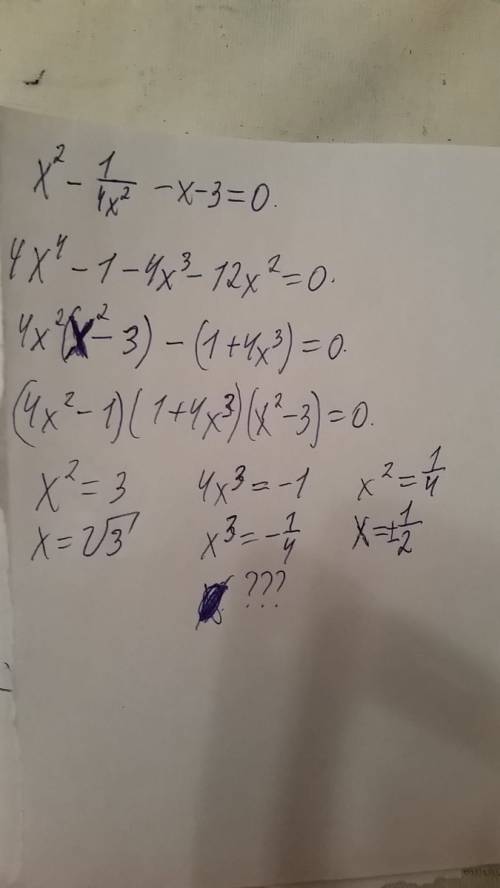 x² - 1/4x² - x - 3 = 0.
4x⁴ - 1 - 4x³ - 12x² = 0.
4x²(x² - 3) - (1 + 4x³) = 0.
(4x² - 1)(1 + 4x³)(x² - 3) = 0.
x² = 3 4x³ = -1 x² = 1/4
x = √3 x³ = -1/4 x = ±1/2
???